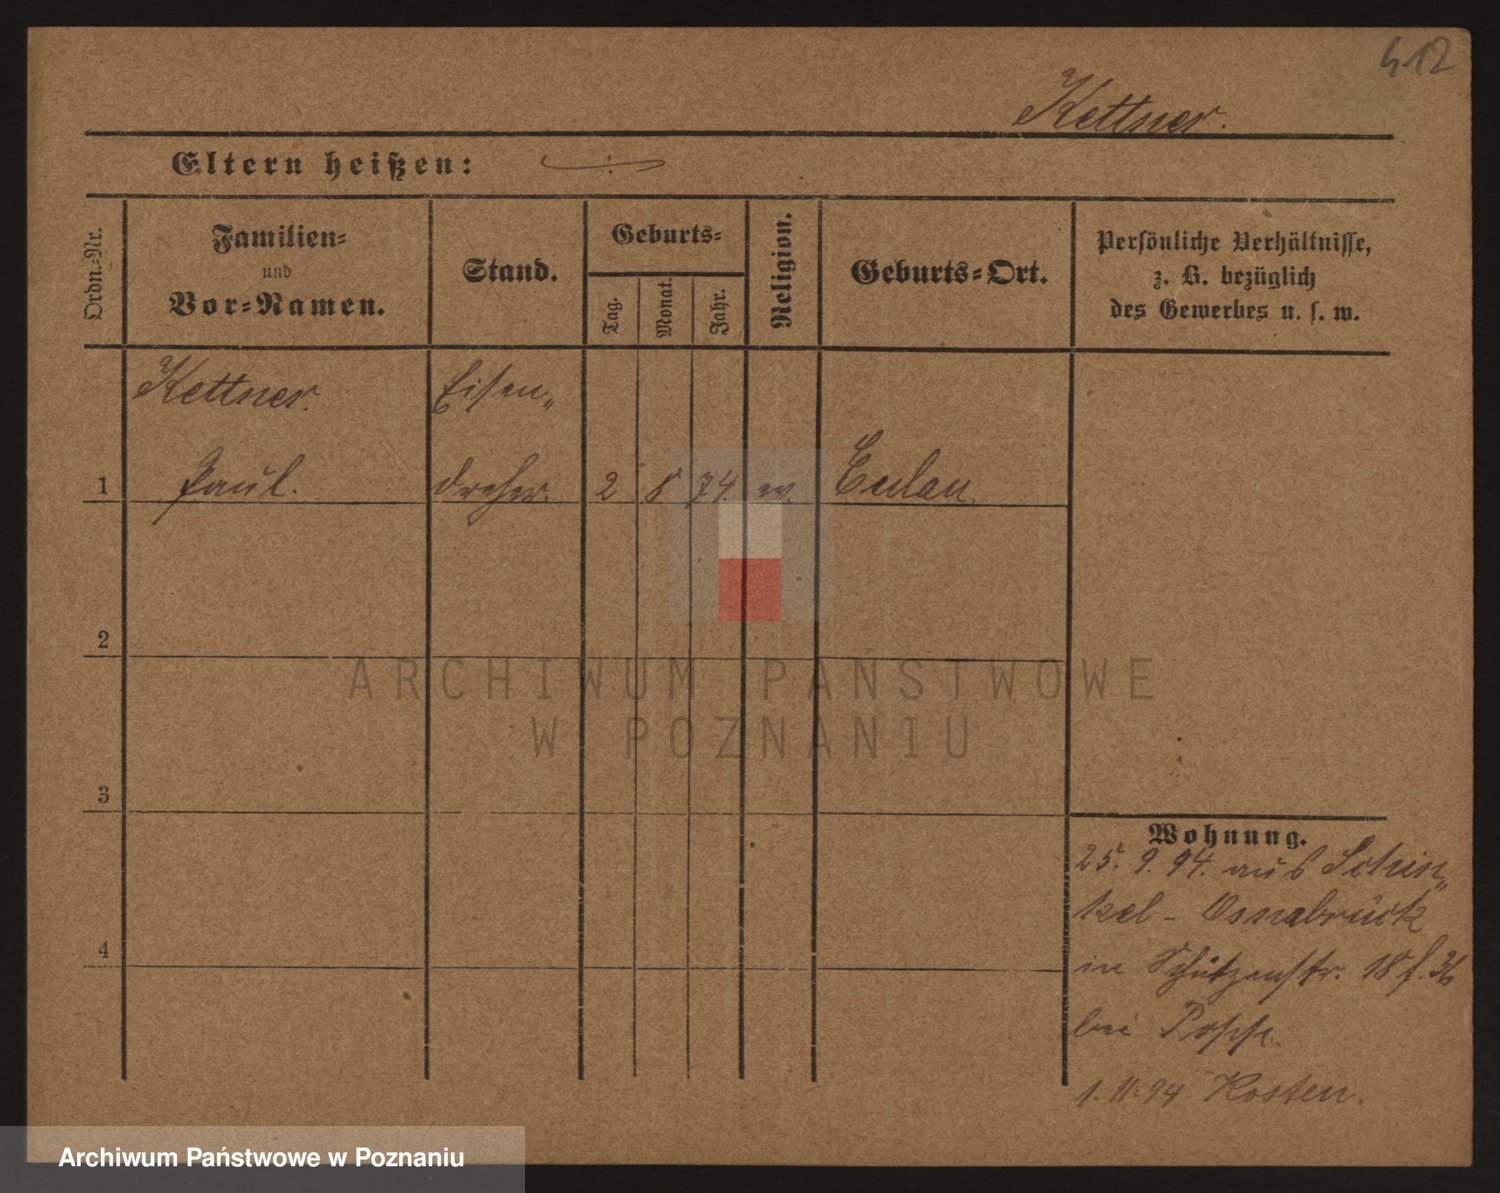 412
Kettner.
Eltern heißen:
Ordn.-Nr.
Familien-
und
Vor-Namen.
Stand.
Geburts-
Tag.
Monat.
Jahr.
Religion.
Geburts-Ort.
Persönliche Verhältnisse,
z. B. bezüglich
des Gewerbes u. s. w.
Kettner. Eisen„
1 Paul. dreher. 2 8 74. ev. Eulau
2
3
4
Wohnung.
25. 9. 94. aus Schin„
kel - Osnabrück
in Schützenstr. 18
bei Poppe.
1. 11. 94 Kosten.
ARCHIWUM PAŃSTWOWE
W POZNANIU
Archiwum Państwowe w Poznaniu